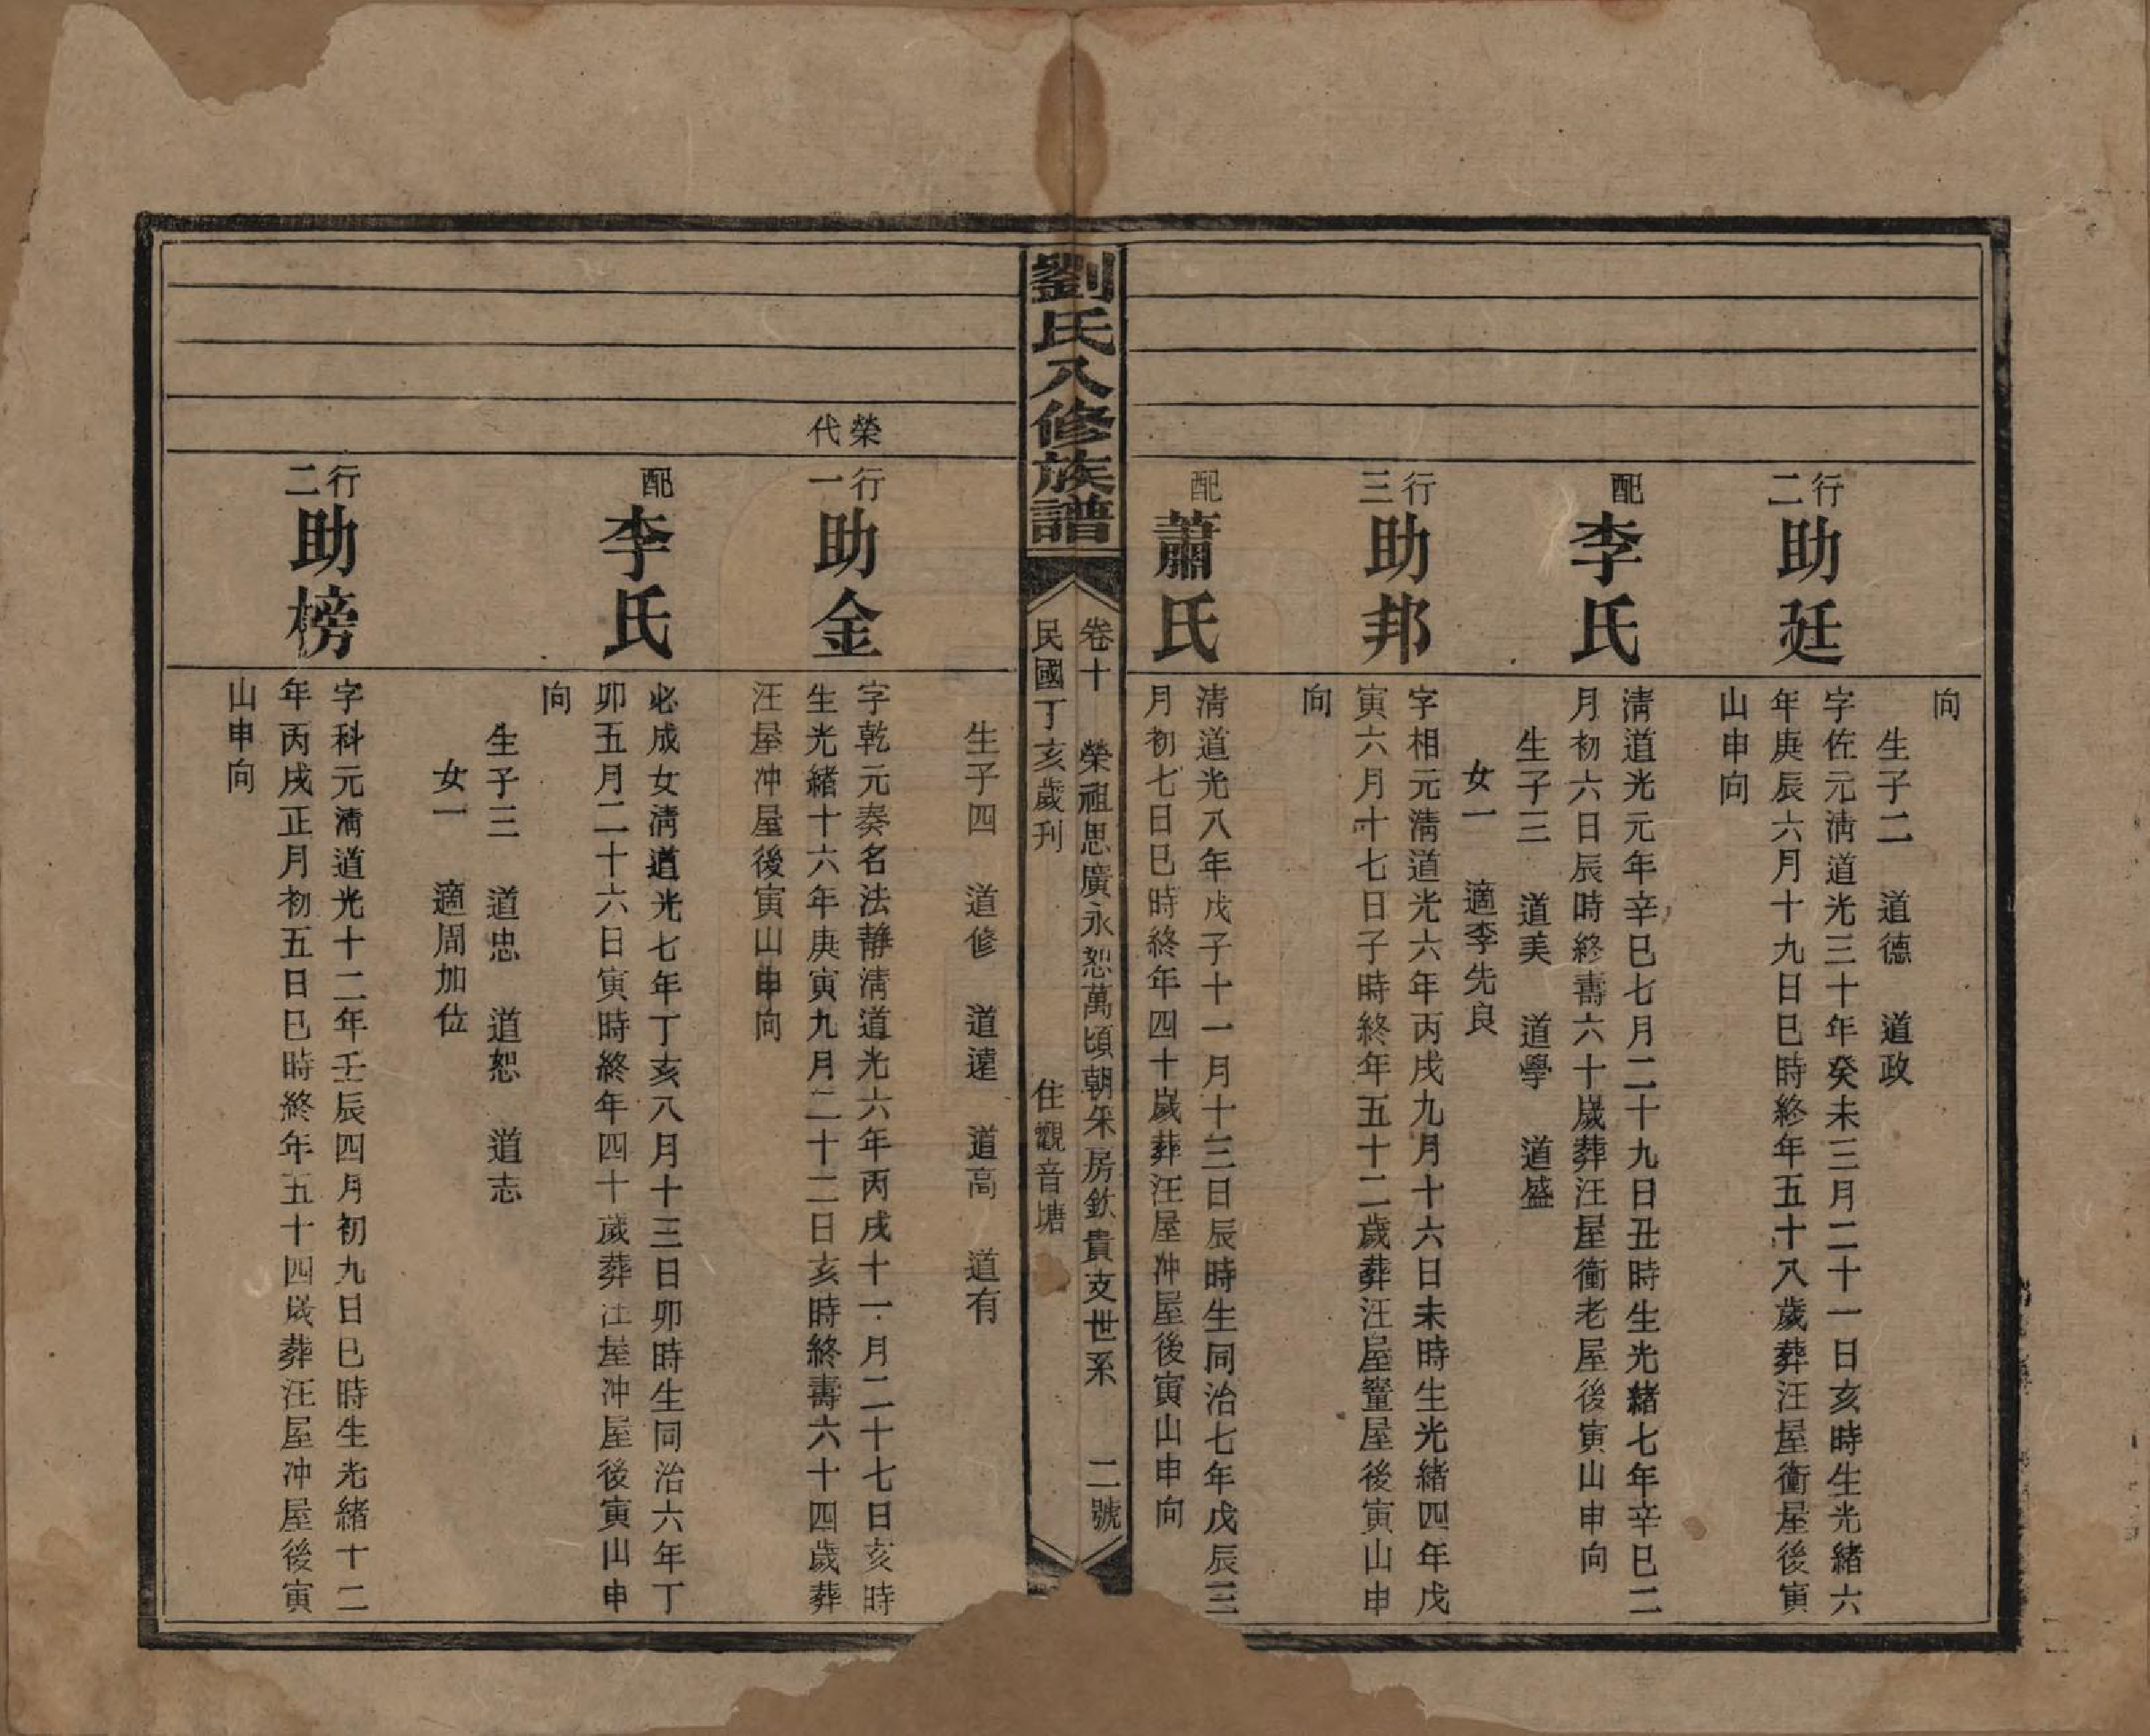 向
生子二　道德　道政
行二
助廷
字佐元淸道光三十年癸未三月二十一日亥時生光緒六
年庚辰六月十九日巳時終年五十八歲葬汪屋衝屋後寅
山申向
配
李氏
淸道光元年辛巳七月二十九日丑時生光緒七年辛巳二
月初六日辰時終壽六十歲葬汪屋衝老屋後寅山申向
生子三　道美　道學　道盛
女一　適李先良
行三
助邦
字相元淸道光六年丙戌九月十六日未時生光緒四年戊
寅六月十七日子時終年五十二歲葬汪屋塋屋後寅山申
向
配
蕭氏
淸道光八年戊子十一月十三日辰時生同治七年戊辰三
月初七日巳時終年四十歲葬汪屋冲屋後寅山申向
劉氏八修族譜
卷十　榮祖思廣永恕萬頃朝采房欽貴支世系　二號
民國丁亥歲刊　住觀音塘
生子四　道修　道遠　道高　道有
榮代
行一
助金
字乾元奏名法靜淸道光六年丙戌十一月二十七日亥時
生光緒十六年庚寅九月二十二日亥時終壽六十四歲葬
汪屋冲屋後寅山申向
配
李氏
必成女淸道光七年丁亥八月十三日卯時生同治六年丁
卯五月二十六日寅時終年四十歲葬汪屋冲屋後寅山申
向
生子三　道忠　道恕　道志
女一　適周加位
行二
助榜
字科元淸道光十二年壬辰四月初九日巳時生光緒十二
年丙戌正月初五日巳時終年五十四歲葬汪屋冲屋後寅
山申向